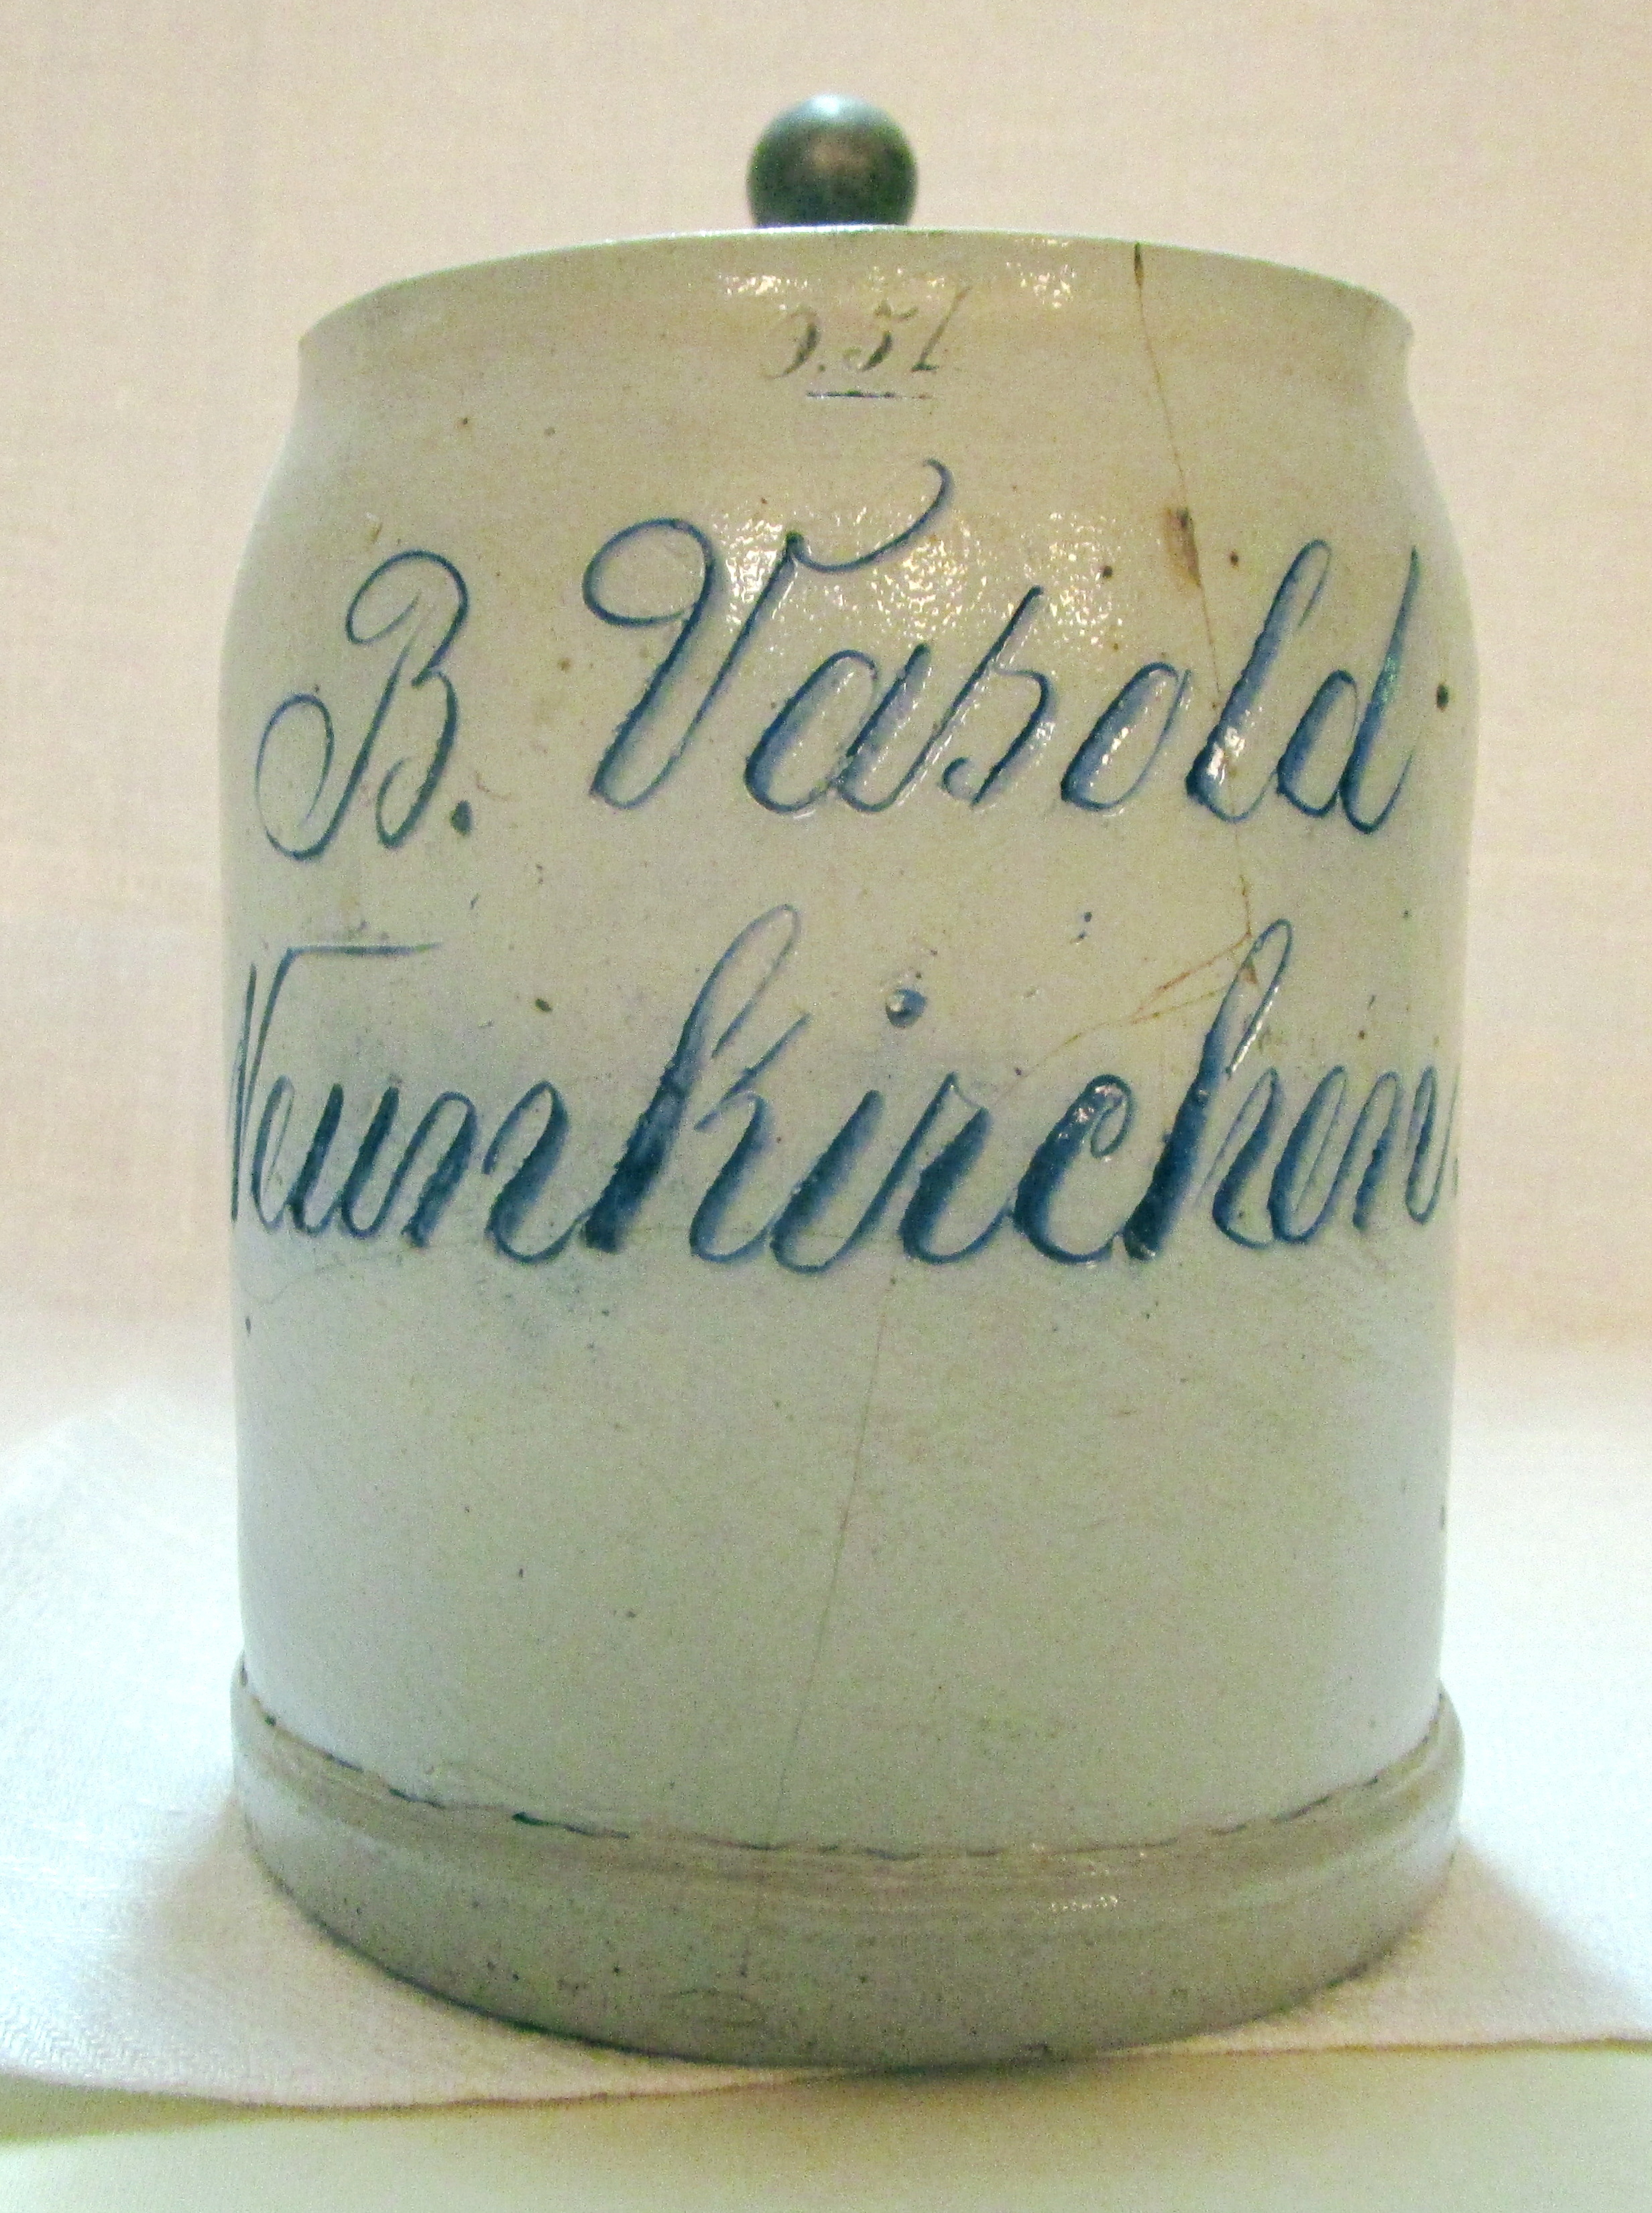 0.5l
B. Vasold
Neunkirchen.